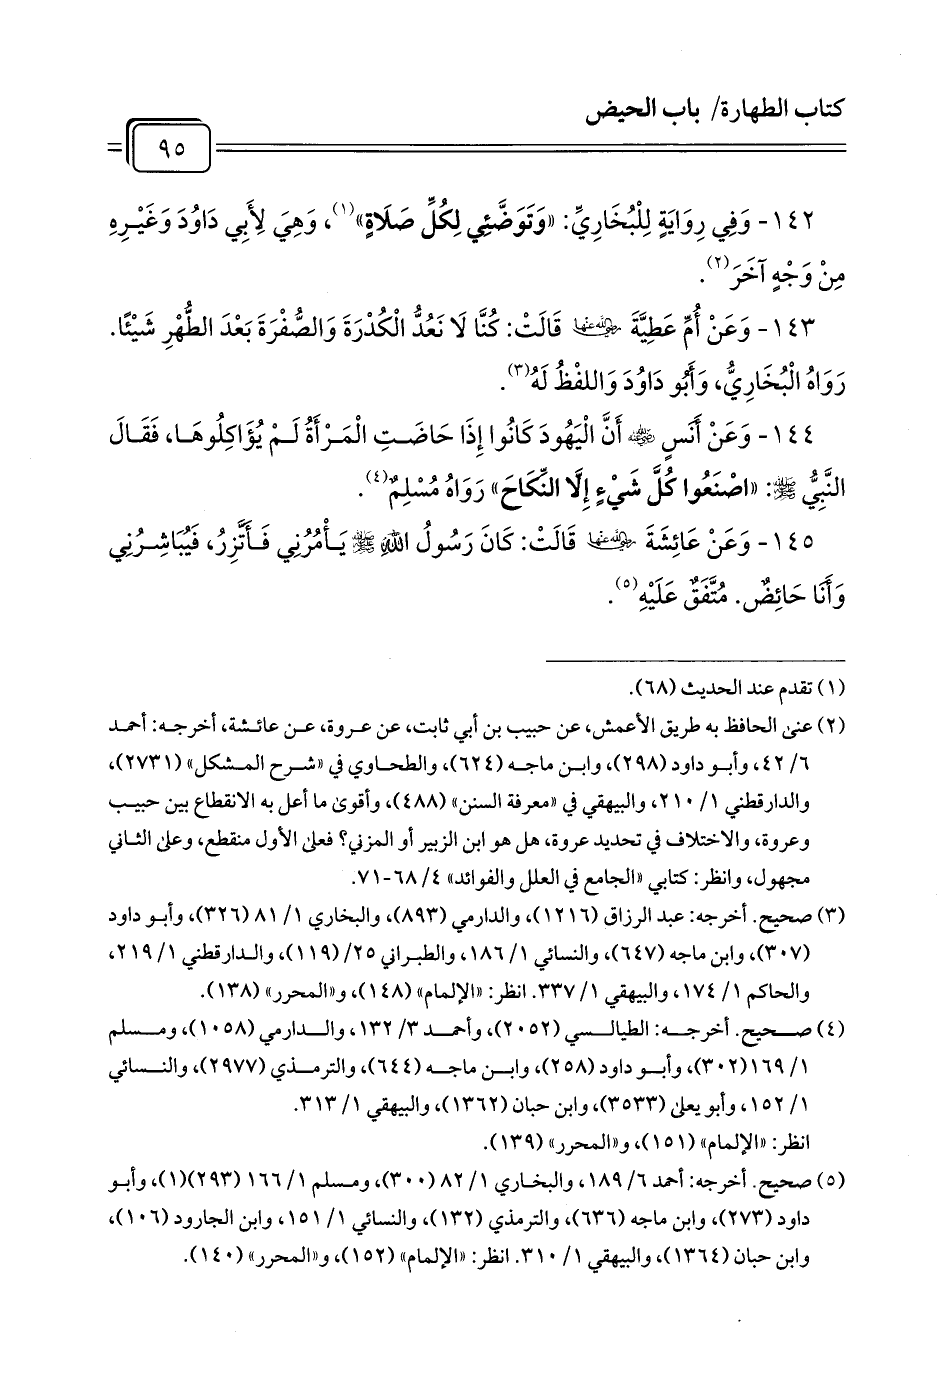 كتاب الطهارة/ باب الحيض
٩٥
١٤٢- وَفِي رِوَايَةٍ لِلْبُخَارِيِّ: «وَتَوَضَّئِي لِكُلِّ صَلَاةٍ»(١)، وَهِيَ لِأَبِي دَاوُدَ وَغَيْرِهِ
مِنْ وَجْهٍ آخَرَ(٢).
١٤٣- وَعَنْ أُمِّ عَطِيَّةَ رضي الله عنها قَالَتْ: كُنَّا لَا نَعُدُّ الْكُدْرَةَ وَالصُّفْرَةَ بَعْدَ الطُّهْرِ شَيْئًا.
رَوَاهُ الْبُخَارِيُّ، وَأَبُو دَاوُدَ وَاللفْظُ لَهُ(٣).
١٤٤- وَعَنْ أَنَسٍ رضي الله عنه أَنَّ الْيَهُودَ كَانُوا إِذَا حَاضَتِ الْمَرْأَةُ لَمْ يُؤَاكِلُوهَا، فَقَالَ
النَّبِيُّ ﷺ: «اصْنَعُوا كُلَّ شَيْءٍ إِلَّا النِّكَاحَ» رَوَاهُ مُسْلِمٌ(٤).
١٤٥- وَعَنْ عَائِشَةَ رضي الله عنها قَالَتْ: كَانَ رَسُولُ اللهِ ﷺ يَأْمُرُنِي فَأَتَّزِرُ، فَيُبَاشِرُنِي
وَأَنَا حَائِضٌ. مُتَّفَقٌ عَلَيْهِ(٥).
(١) تقدم عند الحديث (٦٨).
(٢) عنى الحافظ به طريق الأعمش، عن حبيب بن أبي ثابت، عن عروة، عن عائشة، أخرجه: أحمد
٦/ ٤٢، وأبو داود (٢٩٨)، وابن ماجه (٦٢٤)، والطحاوي في «شرح المشكل» (٢٧٣١)،
والدارقطني ١/ ٢١٠، والبيهقي في «معرفة السنن» (٤٨٨)، وأقوى ما أعل به الانقطاع بين حبيب
وعروة، والاختلاف في تحديد عروة، هل هو ابن الزبير أو المزني؟ فعلى الأول منقطع، وعلى الثاني
مجهول، وانظر: كتابي «الجامع في العلل والفوائد» ٤/ ٦٨-٧١.
(٣) صحيح. أخرجه: عبد الرزاق (١٢١٦)، والدارمي (٨٩٣)، والبخاري ١/ ٨١ (٣٢٦)، وأبو داود
(٣٠٧)، وابن ماجه (٦٤٧)، والنسائي ١/ ١٨٦، والطبراني ٢٥/ (١١٩)، والدارقطني ١/ ٢١٩،
والحاكم ١/ ١٧٤، والبيهقي ١/ ٣٣٧. انظر: «الإلمام» (١٤٨)، و«المحرر» (١٣٨).
(٤) صحيح. أخرجه: الطيالسي (٢٠٥٢)، وأحمد ٣/ ١٣٢، والدارمي (١٠٥٨)، ومسلم
١/ ١٦٩(٣٠٢)، وأبو داود (٢٥٨)، وابن ماجه (٦٤٤)، والترمذي (٢٩٧٧)، والنسائي
١/ ١٥٢، وأبو يعلى (٣٥٣٣)، وابن حبان (١٣٦٢)، والبيهقي ١/ ٣١٣.
انظر: «الإلمام» (١٥١)، و«المحرر» (١٣٩).
(٥) صحيح. أخرجه: أحمد ٦/ ١٨٩، والبخاري ١/ ٨٢ (٣٠٠)، ومسلم ١/ ١٦٦ (٢٩٣)(١)، وأبو
داود (٢٧٣)، وابن ماجه (٦٣٦)، والترمذي (١٣٢)، والنسائي ١/ ١٥١، وابن الجارود (١٠٦)،
وابن حبان (١٣٦٤)، والبيهقي ١/ ٣١٠. انظر: «الإلمام» (١٥٢)، و«المحرر» (١٤٠).